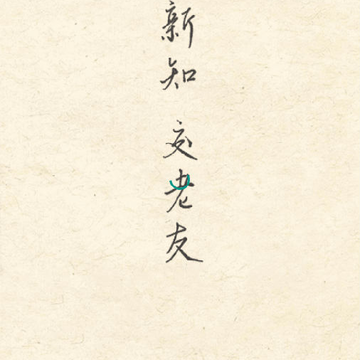 新知 交老友